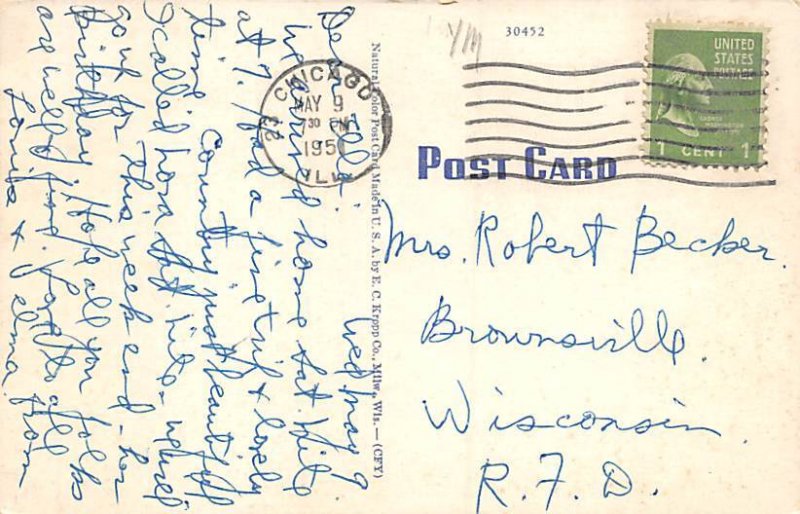 Wed May 9.
Dear
We arrived home Sat. Nite
at 7. Had a fine trip & lovely
time. Country just beautiful
I called Sat. Nite
for this week end - her
Birthday. Hope all you folks
are well & fine. to all from
& Elma.
Natural Color Post Card Made in U. S. A. by E. C. Kropp Co., Milw., Wis. — (CFY)
30452
CHICAGO
23
MAY 9
30 PM
195
ILL.
UNITED
STATES
POSTAGE
GEORGE
WASHINGTON
1 CENT 1
POST CARD
Mrs. Robert Becker.
Brownsville.
Wisconsin.
R.F.D.